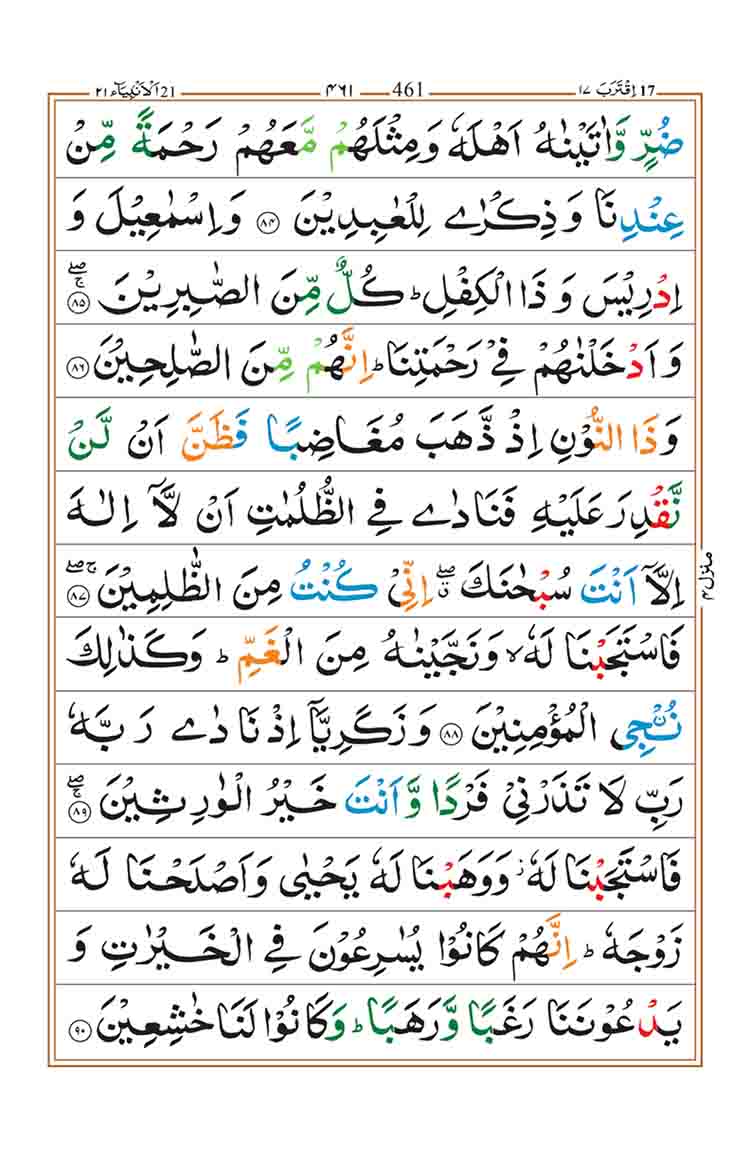 اِقْتَرَبَ ١٧ 17 461 ٤٦١ اَلْاَنْۢبِيَآء ٢١ 21
ضُرٍّ وَّاٰتَيْنٰهُ اَهْلَهٗ وَمِثْلَهُمْ مَّعَهُمْ رَحْمَةً مِّنْ
عِنْدِنَا وَذِكْرٰى لِلْعٰبِدِيْنَ ۝٨٤ وَاِسْمٰعِيْلَ وَ
اِدْرِيْسَ وَذَا الْكِفْلِ ؕ كُلٌّ مِّنَ الصّٰبِرِيْنَ ۝٨٥ ۚۖ
وَاَدْخَلْنٰهُمْ فِيْ رَحْمَتِنَا ؕ اِنَّهُمْ مِّنَ الصّٰلِحِيْنَ ۝٨٦
وَذَا النُّوْنِ اِذْ ذَّهَبَ مُغَاضِبًا فَظَنَّ اَنْ لَّنْ
نَّقْدِرَ عَلَيْهِ فَنَادٰى فِي الظُّلُمٰتِ اَنْ لَّآ اِلٰهَ
اِلَّآ اَنْتَ سُبْحٰنَكَ ۖۗ اِنِّيْ كُنْتُ مِنَ الظّٰلِمِيْنَ ۝٨٧ ۚۖ
منزل ٤
فَاسْتَجَبْنَا لَهٗ ۙ وَنَجَّيْنٰهُ مِنَ الْغَمِّ ؕ وَكَذٰلِكَ
نُـنْۨجِي الْمُؤْمِنِيْنَ ۝٨٨ وَزَكَرِيَّآ اِذْ نَادٰى رَبَّهٗ
رَبِّ لَا تَذَرْنِيْ فَرْدًا وَّاَنْتَ خَيْرُ الْوٰرِثِيْنَ ۝٨٩ ۚۖ
فَاسْتَجَبْنَا لَهٗ ۫ وَوَهَبْنَا لَهٗ يَحْيٰى وَاَصْلَحْنَا لَهٗ
زَوْجَهٗ ؕ اِنَّهُمْ كَانُوْا يُسٰرِعُوْنَ فِي الْخَيْرٰتِ وَ
يَدْعُوْنَنَا رَغَبًا وَّرَهَبًا ؕ وَكَانُوْا لَنَا خٰشِعِيْنَ ۝٩٠